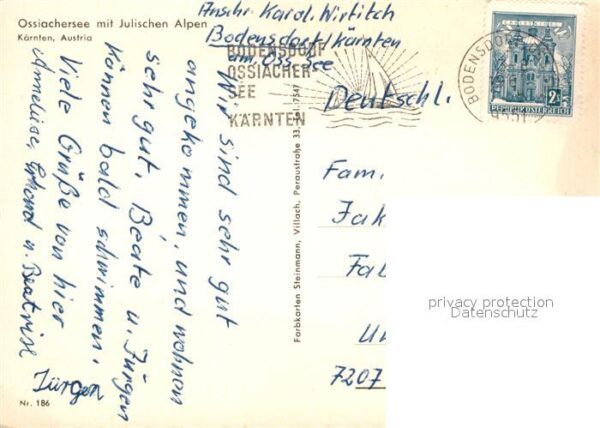 Ossiachersee mit Julischen Alpen
Kärnten, Austria
Anschr. Karol. Wirtitch
Bodensdorf/Kärnten
am Oss. See
BODENSDORF
OSSIACHER
SEE
KÄRNTEN
BODENSDORF
9551
2S
REPUBLIK ÖSTERREICH
Deutschl.
Wir sind sehr gut
angekommen, und wohnen
sehr gut. Beate u. Jürgen
können bald schwimmen.
Viele Grüße von hier
Anneliese, Erhard u. Beatrise
Jürgen
Nr. 186
Farbkarten Steinmann, Villach, Peraustraße 33, Tel. 7547
Fam.
Jak
Fab
Un
7207
privacy protection
Datenschutz